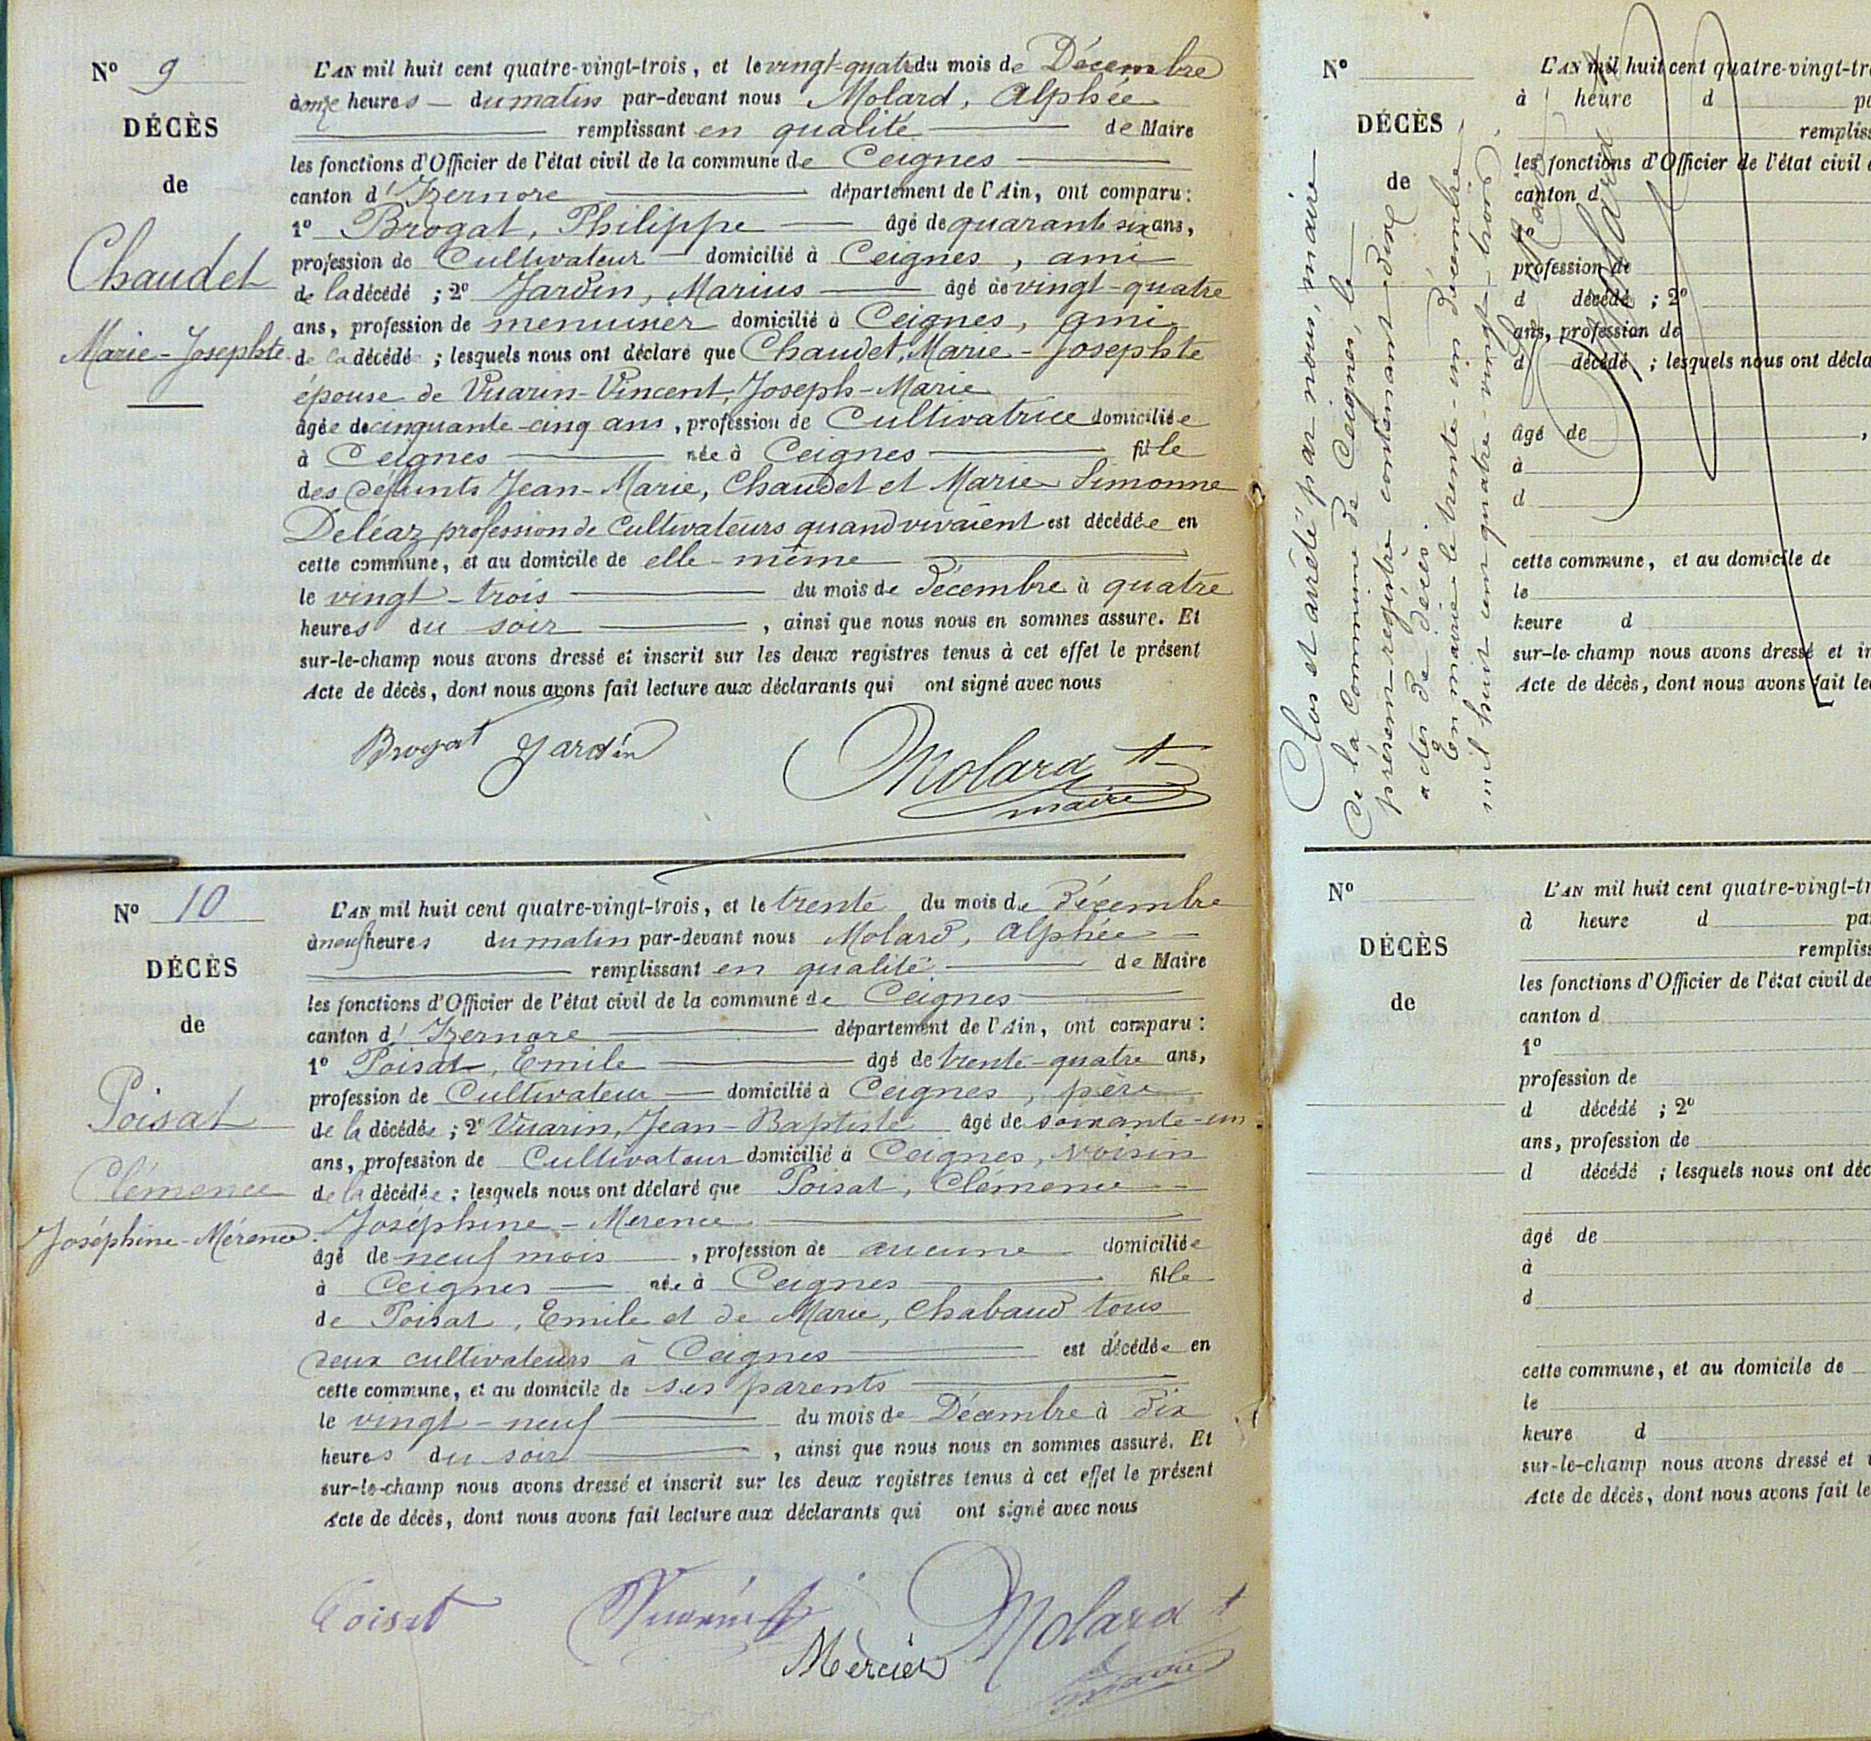 N° 9
DÉCÈS
de
Chaudet
Marie-Josephte
L'AN mil huit cent quatre-vingt-trois, et le vingt-quatre du mois de Décembre
à onze heures du matin par-devant nous Molard, Alphée
remplissant en qualité de Maire
les fonctions d'Officier de l'état civil de la commune de Ceignes
canton d'Izernore département de l'Ain, ont comparu :
1° Brogat, Philippe âgé de quarante six ans,
profession de Cultivateur domicilié à Ceignes, ami
de la décédé ; 2° Jardin, Marius âgé de vingt-quatre
ans, profession de menuisier domicilié à Ceignes, ami
de la décédé ; lesquels nous ont déclaré que Chaudet, Marie-Josephte
épouse de Vuarin-Vincent, Joseph-Marie
âgée de cinquante-cinq ans, profession de Cultivatrice domiciliée
à Ceignes née à Ceignes fille
des défunts Jean-Marie, Chaudet et Marie Simonne
Deléaz profession de Cultivateurs quand vivaient est décédée en
cette commune, et au domicile de elle-même
le vingt-trois du mois de Décembre à quatre
heures du soir, ainsi que nous nous en sommes assuré. Et
sur-le-champ nous avons dressé et inscrit sur les deux registres tenus à cet effet le présent
Acte de décès, dont nous avons fait lecture aux déclarants qui ont signé avec nous
Brogat Jardin Molard A
maire
N° 10
DÉCÈS
de
Poisat
Clémence
Joséphine-Mérence
L'AN mil huit cent quatre-vingt-trois, et le trente du mois de Décembre
à neuf heures du matin par-devant nous Molard, Alphée
remplissant en qualité de Maire
les fonctions d'Officier de l'état civil de la commune de Ceignes
canton d'Izernore département de l'Ain, ont comparu :
1° Poisat, Emile âgé de trente-quatre ans,
profession de Cultivateur domicilié à Ceignes, père
de la décédée ; 2° Vuarin, Jean-Baptiste âgé de soixante-un
ans, profession de Cultivateur domicilié à Ceignes, voisin
de la décédée ; lesquels nous ont déclaré que Poisat, Clémence
Joséphine-Merence
âgé de neuf mois, profession de aucune domiciliée
à Ceignes née à Ceignes fille
de Poisat, Emile et de Marie, Chabaud tous
deux cultivateurs à Ceignes est décédée en
cette commune, et au domicile de ses parents
le vingt-neuf du mois de Décembre à dix
heures du soir, ainsi que nous nous en sommes assuré. Et
sur-le-champ nous avons dressé et inscrit sur les deux registres tenus à cet effet le présent
Acte de décès, dont nous avons fait lecture aux déclarants qui ont signé avec nous
Poisat Molard A
Mercier maire
N°
DÉCÈS
de
Clos et arrêté par nous, maire
de la Commune de Ceignes, le
présent registre contenant dix
actes de décès.
En mairie le trente-un décembre
mil huit cent quatre-vingt-trois.
L'AN mil huit cent quatre-vingt-tr
à heure d pa
rempliss
les fonctions d'Officier de l'état civil d
canton d
1°
profession de
d décédé ; 2°
ans, profession de
d décédé ; lesquels nous ont décla
âgé de ,
à
d
cette commune, et au domicile de
le
heure d
sur-le-champ nous avons dressé et in
Acte de décès, dont nous avons fait lec
N°
DÉCÈS
de
L'AN mil huit cent quatre-vingt-tr
à heure d pa
rempliss
les fonctions d'Officier de l'état civil de
canton d
1°
profession de
d décédé ; 2°
ans, profession de
d décédé ; lesquels nous ont déc
âgé de
à
d
cette commune, et au domicile de
le
heure d
sur-le-champ nous avons dressé et
Acte de décès, dont nous avons fait le